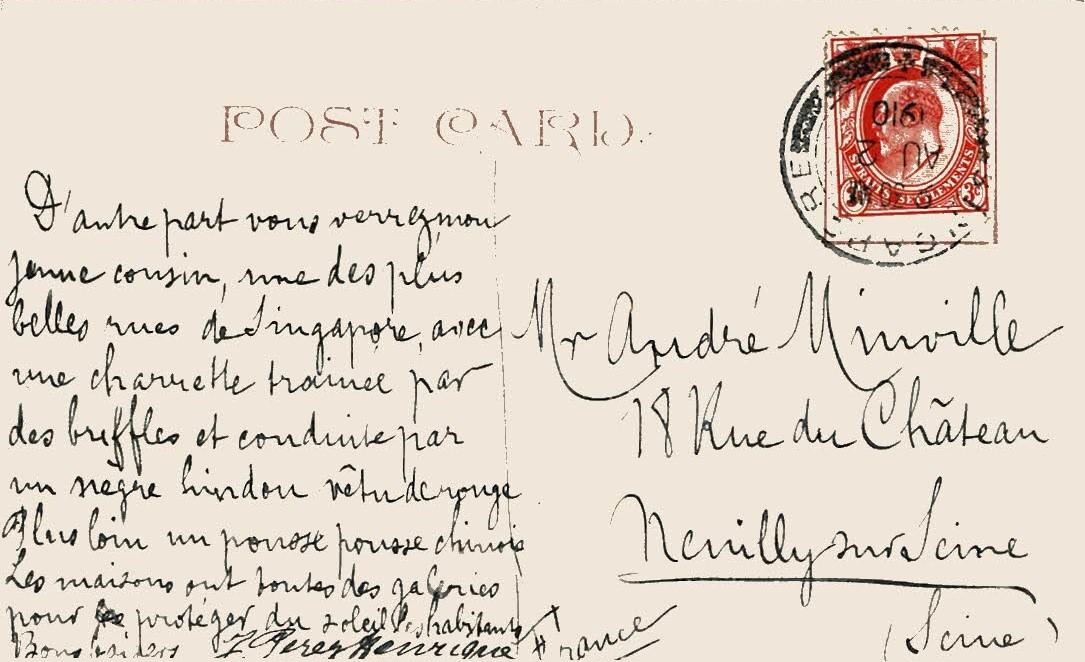 POST CARD.
STRAITS SETTLEMENTS
SINGAPORE
AU 2
1910
D'autre part vous verrez mon
jeune cousin, une des plus
belles rues de Singapore, avec
une charrette trainée par
des buffles et conduite par
un nègre hindou vêtu de rouge
Plus loin un pousse pousse chinois
Les maisons ont toutes des galeries
pour protéger du soleil les habitants
Bons baisers J. Perez Henrique
Mr André Minville
18 Rue du Château
Neuilly sur Seine
(Seine)
France